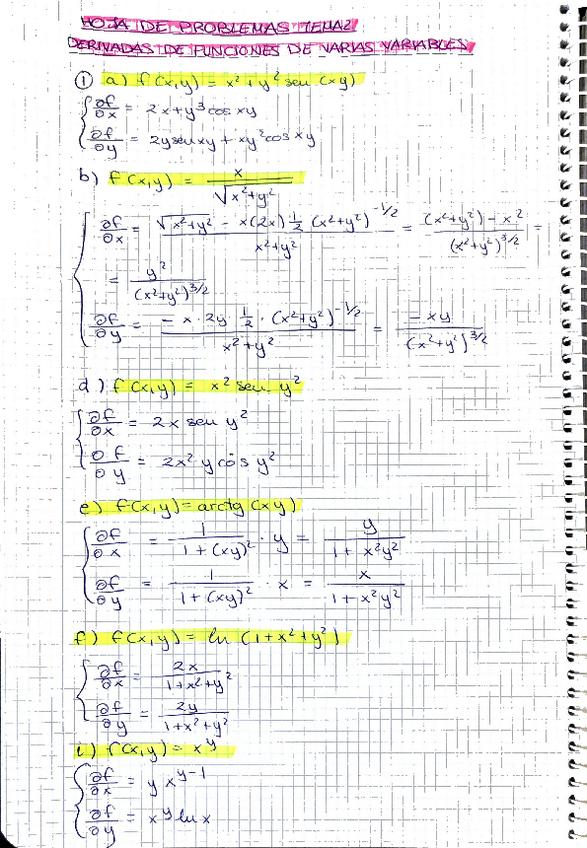 HOJA DE PROBLEMAS TEMA 2
DERIVADAS DE FUNCIONES DE VARIAS VARIABLES
① a) f(x,y) = x² + y² sen (xy)
∂f/∂x = 2x + y³ cos xy
∂f/∂y = 2y sen xy + xy² cos xy
b) f(x,y) = x / √(x²+y²)
∂f/∂x = (√(x²+y²) - x(2x) 1/2 (x²+y²)^(-1/2)) / (x²+y²) = ((x²+y²) - x²) / (x²+y²)^(3/2) =
= y² / (x²+y²)^(3/2)
∂f/∂y = (-x · 2y 1/2 · (x²+y²)^(-1/2)) / (x²+y²) = -xy / (x²+y²)^(3/2)
d) f(x,y) = x² sen y²
∂f/∂x = 2x sen y²
∂f/∂y = 2x² y cos y²
e) f(x,y) = arctg (xy)
∂f/∂x = 1 / (1+(xy)²) · y = y / (1+x²y²)
∂f/∂y = 1 / (1+(xy)²) · x = x / (1+x²y²)
f) f(x,y) = ln (1+x²+y²)
∂f/∂x = 2x / (1+x²+y²)
∂f/∂y = 2y / (1+x²+y²)
i) f(x,y) = x^y
∂f/∂x = y x^(y-1)
∂f/∂y = x^y ln x